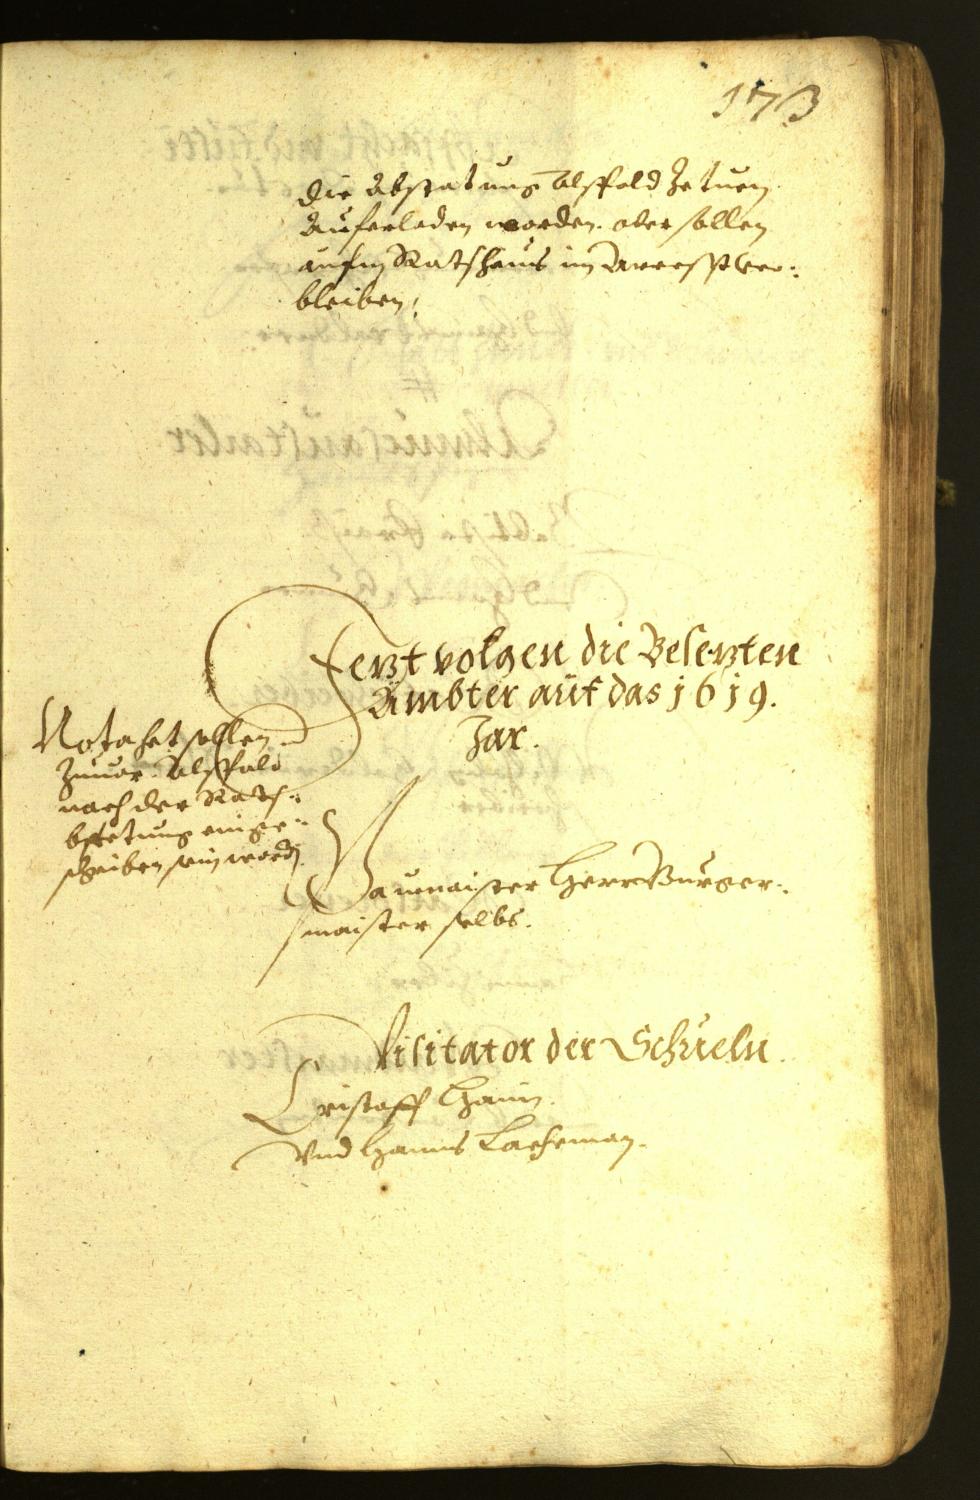 173
die Abstatung alßbald ze tuen
Auferladen worden. oder sollen
aufm Ratshaus im Arresst ver:
bleiben.
Jetzt volgen die Besetzten
Ämbter auf das 1619.
Jar.
Nota hat sollen
zuuor alßbald
nach der Rats:
bsetung einge:
schriben sein worden
Paumaister Herr Burger:
maister selbs.
Visitator der Schueln
Cristoff
Vnd Hanns Lachman.